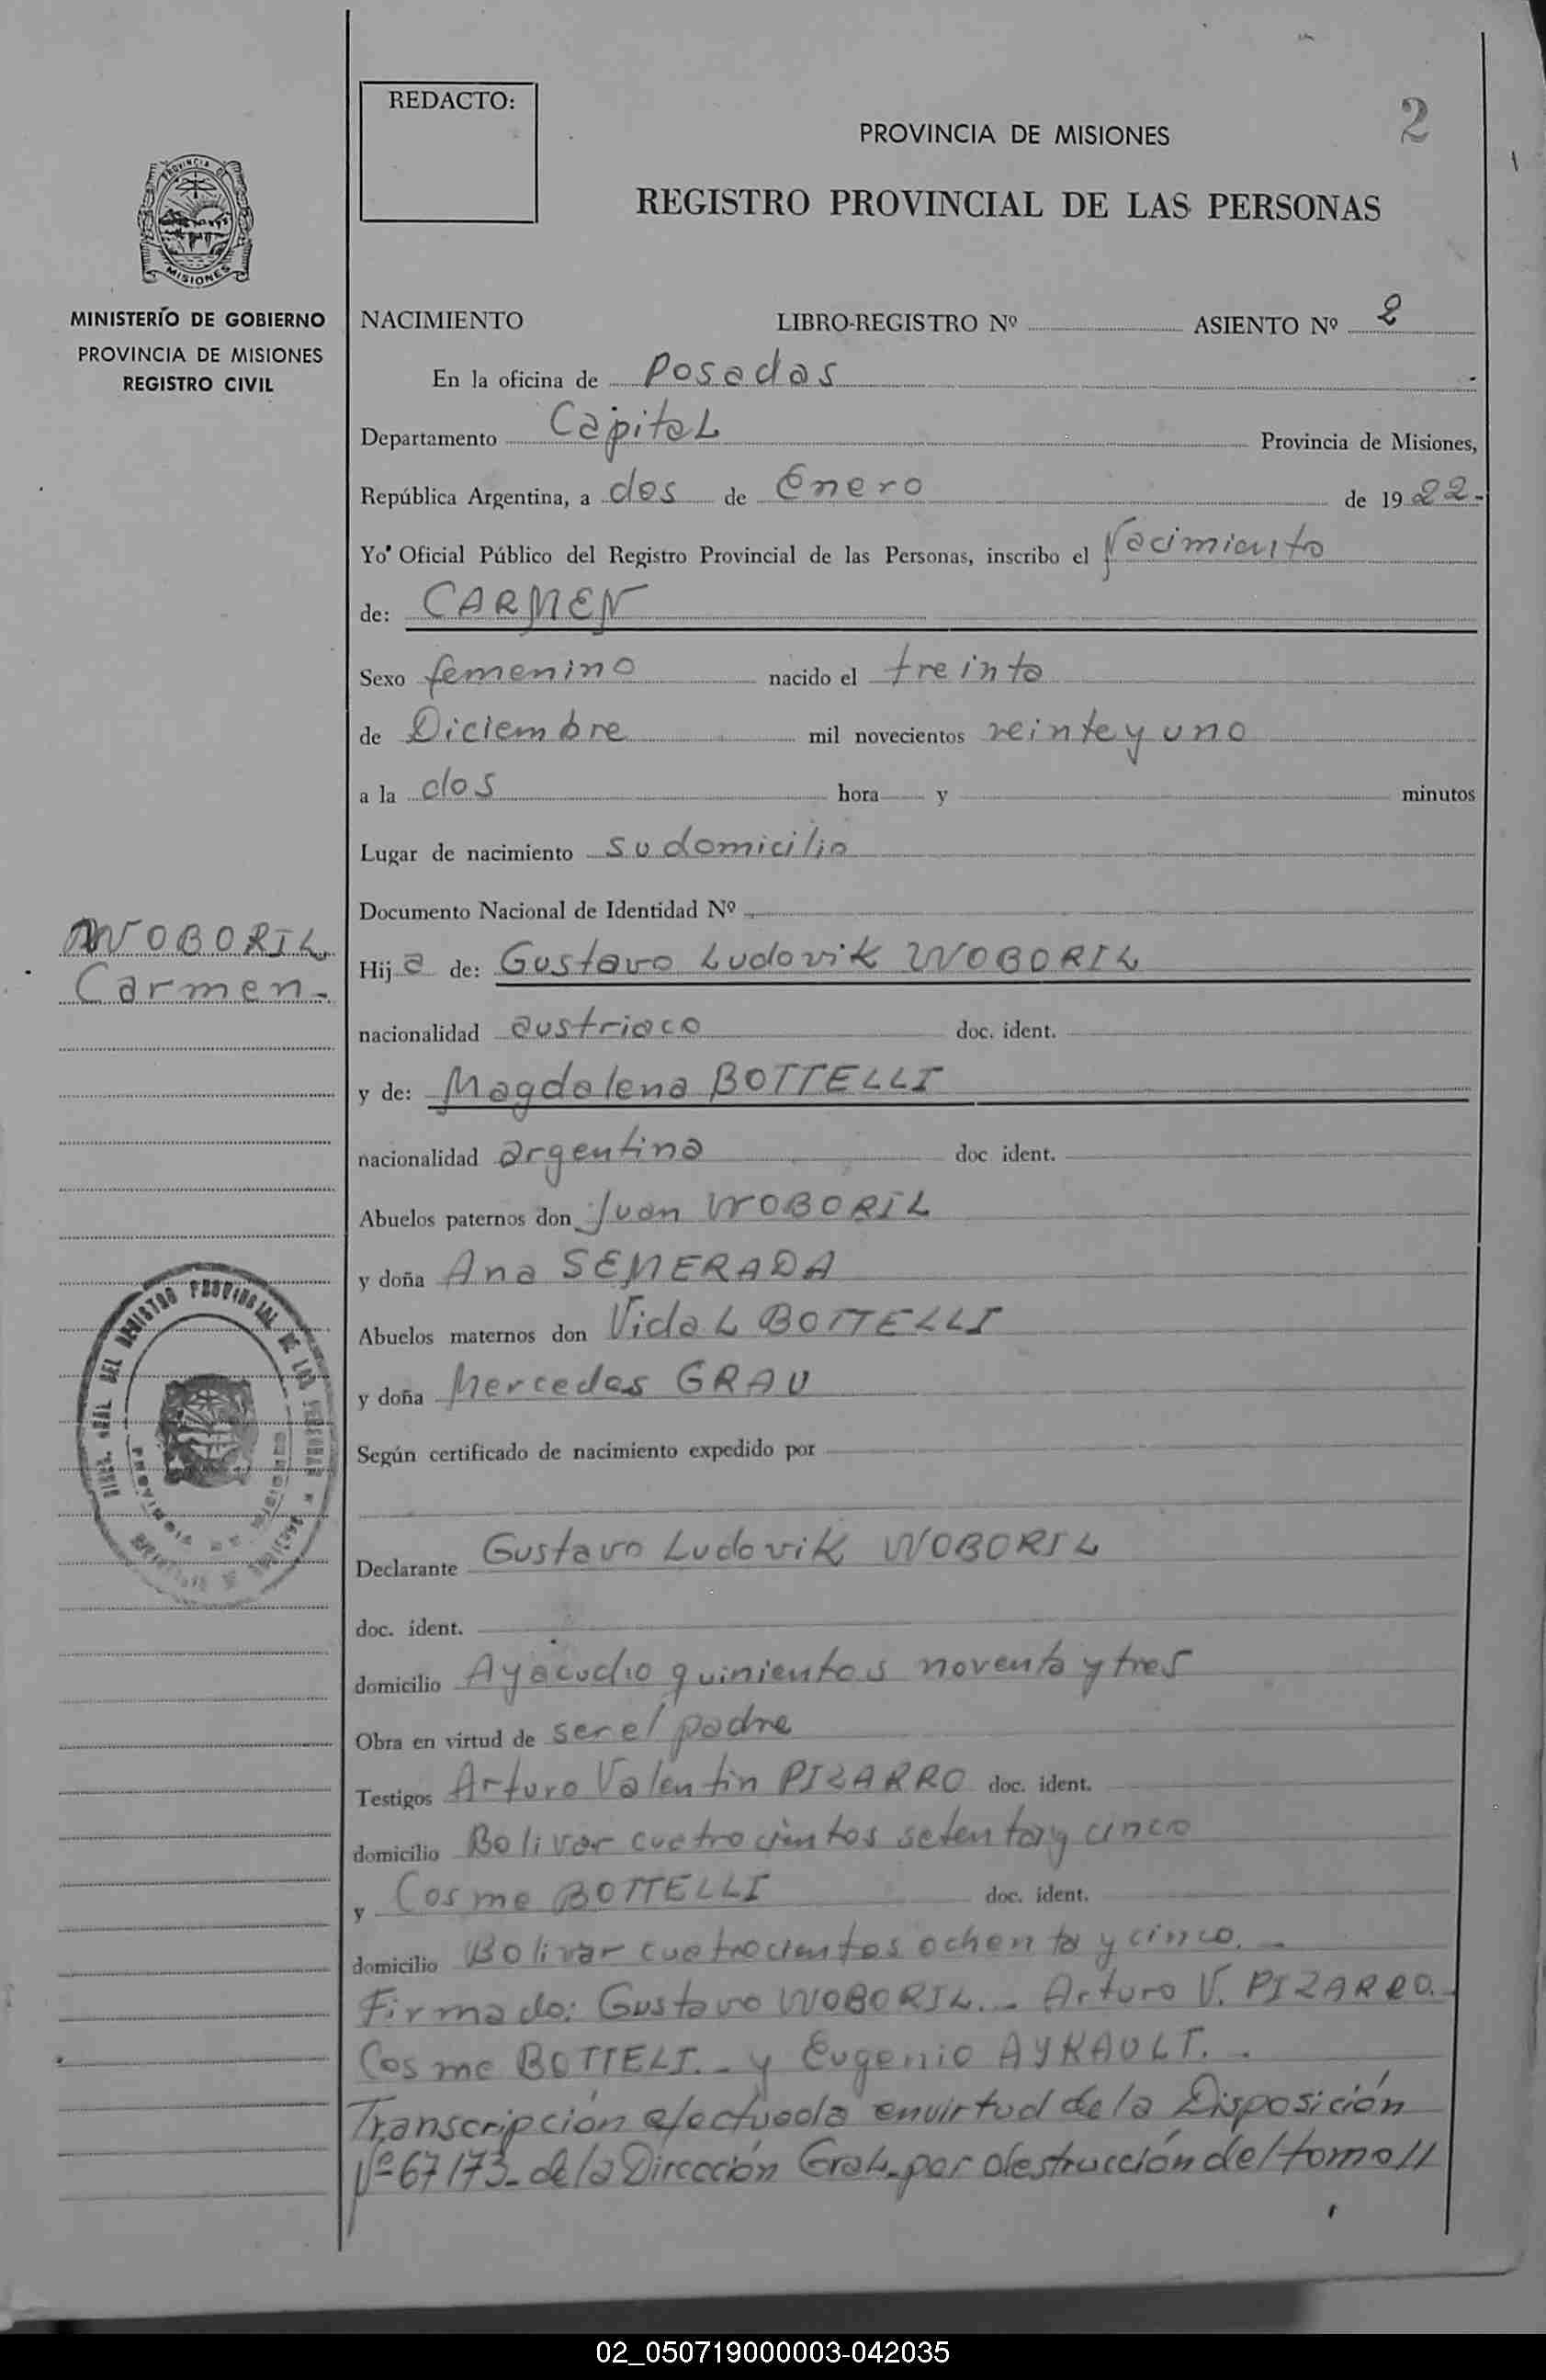 REDACTO:
2
PROVINCIA DE MISIONES
REGISTRO PROVINCIAL DE LAS PERSONAS
PROVINCIA DE
MISIONES
MINISTERIO DE GOBIERNO
PROVINCIA DE MISIONES
REGISTRO CIVIL
NACIMIENTO LIBRO-REGISTRO Nº ASIENTO Nº 2
En la oficina de Posadas
Departamento Capital Provincia de Misiones,
República Argentina, a dos de Enero de 1922.-
Yo' Oficial Público del Registro Provincial de las Personas, inscribo el Nacimiento
de: CARMEN
Sexo femenino nacido el treinta
de Diciembre mil novecientos veinte y uno
a la dos hora y minutos
Lugar de nacimiento su domicilio
Documento Nacional de Identidad Nº
WOBORIL
Carmen.-
Hija de: Gustavo Ludovik WOBORIL
nacionalidad austriaco doc. ident.
y de: Magdalena BOTTELLI
nacionalidad argentina doc ident.
Abuelos paternos don Juan WOBORIL
y doña Ana SEMERADA
Abuelos maternos don Vidal BOTTELLI
y doña Mercedes GRAU
Según certificado de nacimiento expedido por
DEL REGISTRO PROVINCIAL DE LAS PERSONAS
Declarante Gustavo Ludovik WOBORIL
doc. ident.
domicilio Ayacucho quinientos noventa y tres
Obra en virtud de ser el padre
Testigos Arturo Valentin PIZARRO doc. ident.
domicilio Bolivar cuatrocientos setenta y cinco
y Cosme BOTTELLI doc. ident.
domicilio Bolivar cuatrocientos ochenta y cinco.-
Firmado: Gustavo WOBORIL.- Arturo V. PIZARRO.
Cosme BOTTELI.- y Eugenio AYRAULT.-
Transcripción efectuada en virtud de la Disposición
Nº 67/73- de la Dirección Gral. por destrucción del tomo 11
02_050719000003-042035